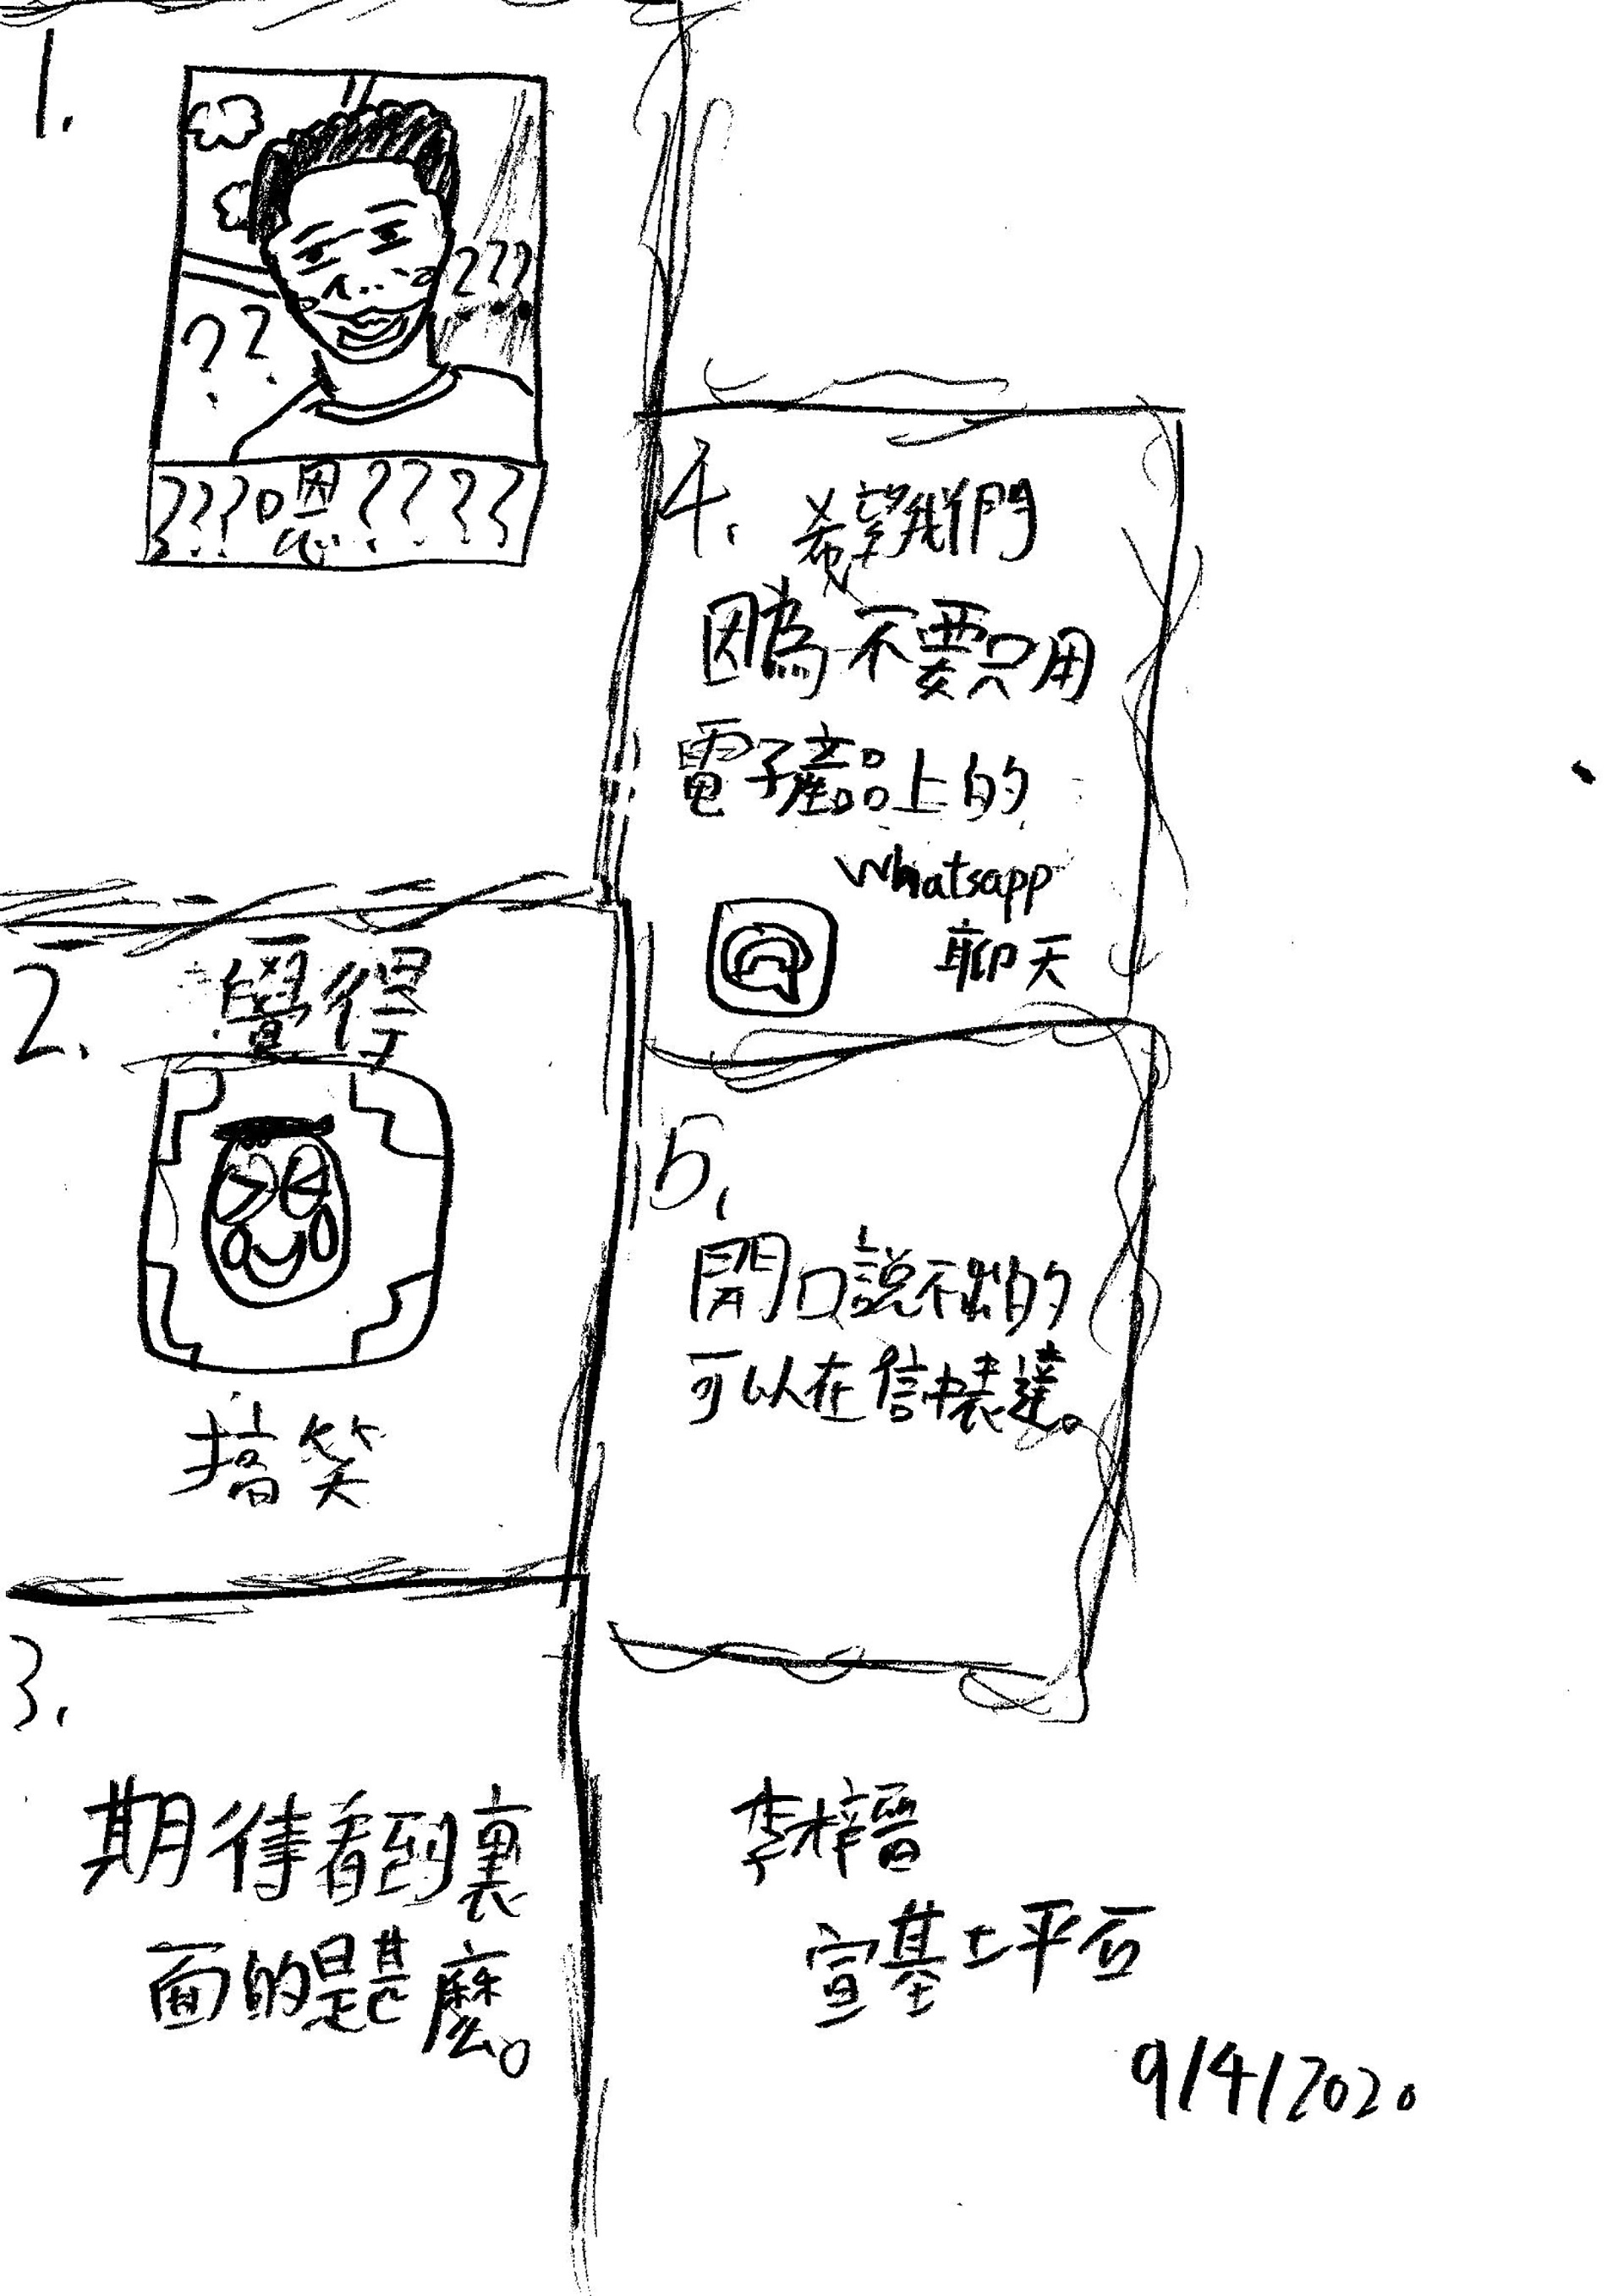 1.
??
???
???嗯????
2.
覺得
搞笑
3.
期待看到裏
面的是甚麼。
4.
希望我們
因為不要只用
電子產品上的
Whatsapp
聊天
5.
開口說不出的
可以在信中表達。
李梓晉
宣基土平台
9/4/2020